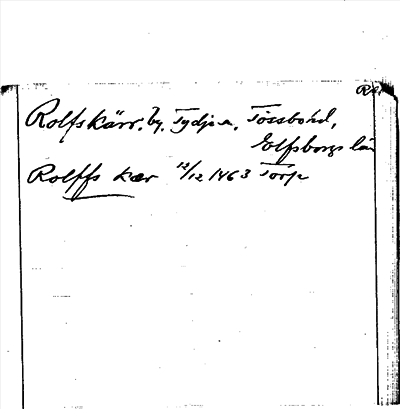 Rolfskärr, by, Tydje s., Tössbo hd,
Elfsborgs län
Rolffs kær 12/12 1463 Torp